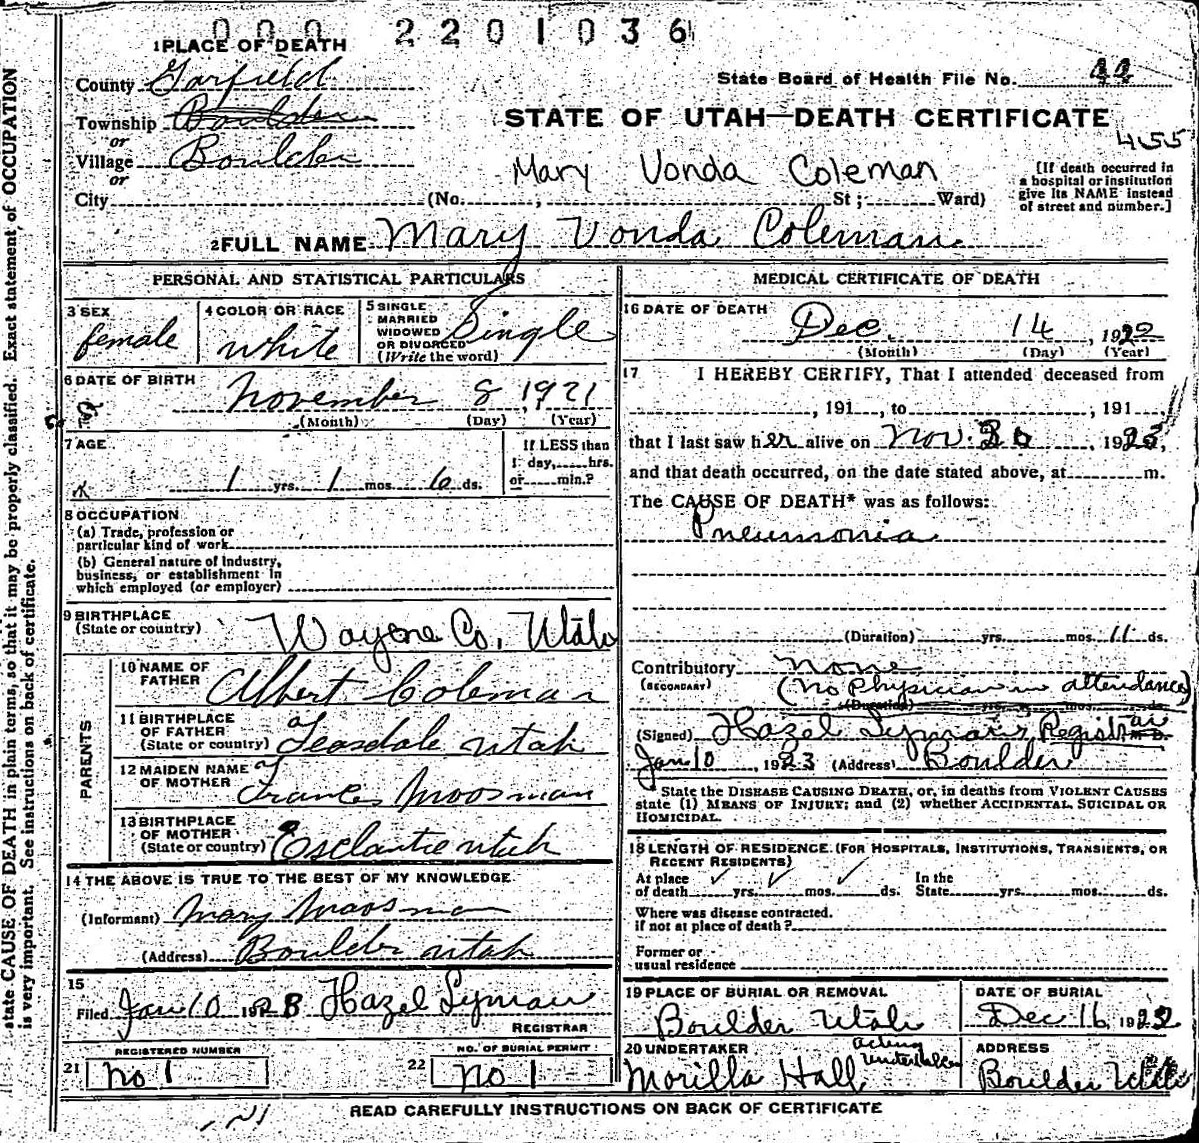 000 2201036
1 PLACE OF DEATH
County Garfield
State Board of Health File No. 44
Township Boulder
or
STATE OF UTAH—DEATH CERTIFICATE
455
Village Boulder
or
Mary Vonda Coleman
[If death occurred in
a hospital or institution
give its NAME instead
of street and number.]
City (No. , St ; Ward)
2 FULL NAME Mary Vonda Coleman
PERSONAL AND STATISTICAL PARTICULARS
3 SEX
female
4 COLOR OR RACE
white
5 SINGLE
MARRIED
WIDOWED
OR DIVORCED
(Write the word)
Single
6 DATE OF BIRTH
November 8, 1921
(Month) (Day) (Year)
7 AGE
1 yrs. 1 mos. 6 ds.
If LESS than
1 day, hrs.
or min.?
8 OCCUPATION
(a) Trade, profession or
particular kind of work
(b) General nature of Industry,
business, or establishment in
which employed (or employer)
9 BIRTHPLACE
(State or country)
Wayne Co, Utah
PARENTS
10 NAME OF
FATHER
Albert Coleman
11 BIRTHPLACE
OF FATHER
(State or country)
Teasdale utah
12 MAIDEN NAME
OF MOTHER
Frances Moosman
13 BIRTHPLACE
OF MOTHER
(State or country)
Esclantie utah
14 THE ABOVE IS TRUE TO THE BEST OF MY KNOWLEDGE
(Informant) Mary Moosman
(Address) Boulder utah
15
Filed Jan 10 1923 Hazel Lyman
REGISTRAR
REGISTERED NUMBER
21 no 1
NO. OF BURIAL PERMIT:
22 no 1
MEDICAL CERTIFICATE OF DEATH
16 DATE OF DEATH
Dec. 14, 1922
(Month) (Day) (Year)
17 I HEREBY CERTIFY, That I attended deceased from
, 191 , to , 191
that I last saw her alive on Nov. 30 192
and that death occurred, on the date stated above, at m.
The CAUSE OF DEATH* was as follows:
Pneumonia
(Duration) yrs. mos. 11 ds.
Contributory none
(SECONDARY)
(no Physician in attendance)
(Duration) yrs. mos. ds.
(Signed) Hazel Lyman Registrar
M.D.
Jan 10, 1923 (Address) Boulder
State the DISEASE CAUSING DEATH, or, in deaths from VIOLENT CAUSES
state (1) MEANS OF INJURY; and (2) whether ACCIDENTAL, SUICIDAL OR
HOMICIDAL.
18 LENGTH OF RESIDENCE (FOR HOSPITALS, INSTITUTIONS, TRANSIENTS, OR
RECENT RESIDENTS)
At place
of death yrs. mos. ds.
In the
State yrs. mos. ds.
Where was disease contracted.
if not at place of death?
Former or
usual residence
19 PLACE OF BURIAL OR REMOVAL
Boulder Utah
DATE OF BURIAL
Dec 16, 1922
20 UNDERTAKER
acting
undertaker
Morilla Hall
ADDRESS
Boulder Utah
READ CAREFULLY INSTRUCTIONS ON BACK OF CERTIFICATE
state CAUSE OF DEATH in plain terms, so that it may be properly classified. Exact statement of OCCUPATION
is very important. See instructions on back of certificate.